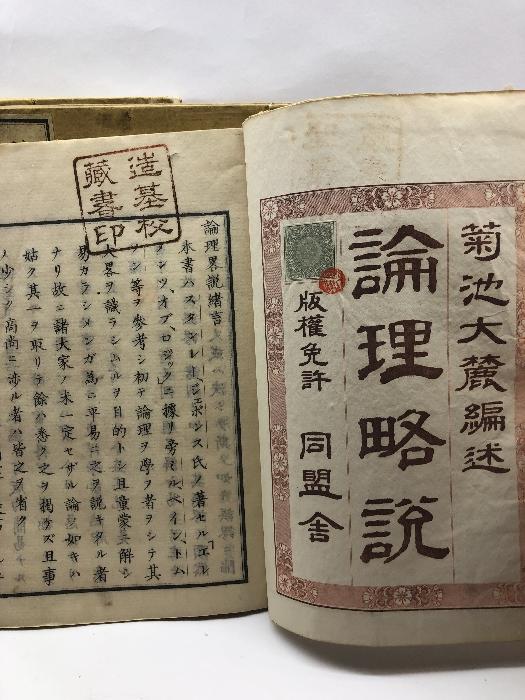 菊池大麓編述
論理略説
版權免許 同盟舎
造基校
藏書印
論理畧説緒言
本書ハスタンレー、ジェボンス氏ノ著セルエレ
メンツ、オブ、ロジックニ據リ旁ミル、ベイン、トム
ソン等ヲ參考シ初テ論理ヲ學フ者ヲシテ其
大畧ヲ識ラシムルヲ目的トシ且童蒙ノ解シ
易カラシメンガ為ニ平易ニ之ヲ説キタル者
ナリ故ニ諸大家ノ未一定セザル論ノ如キハ
姑ク其一ヲ取リテ餘ハ悉ク之ヲ掲ケズ且事
ノ少シク高尚ニ渉ル者ハ皆之ヲ省ク